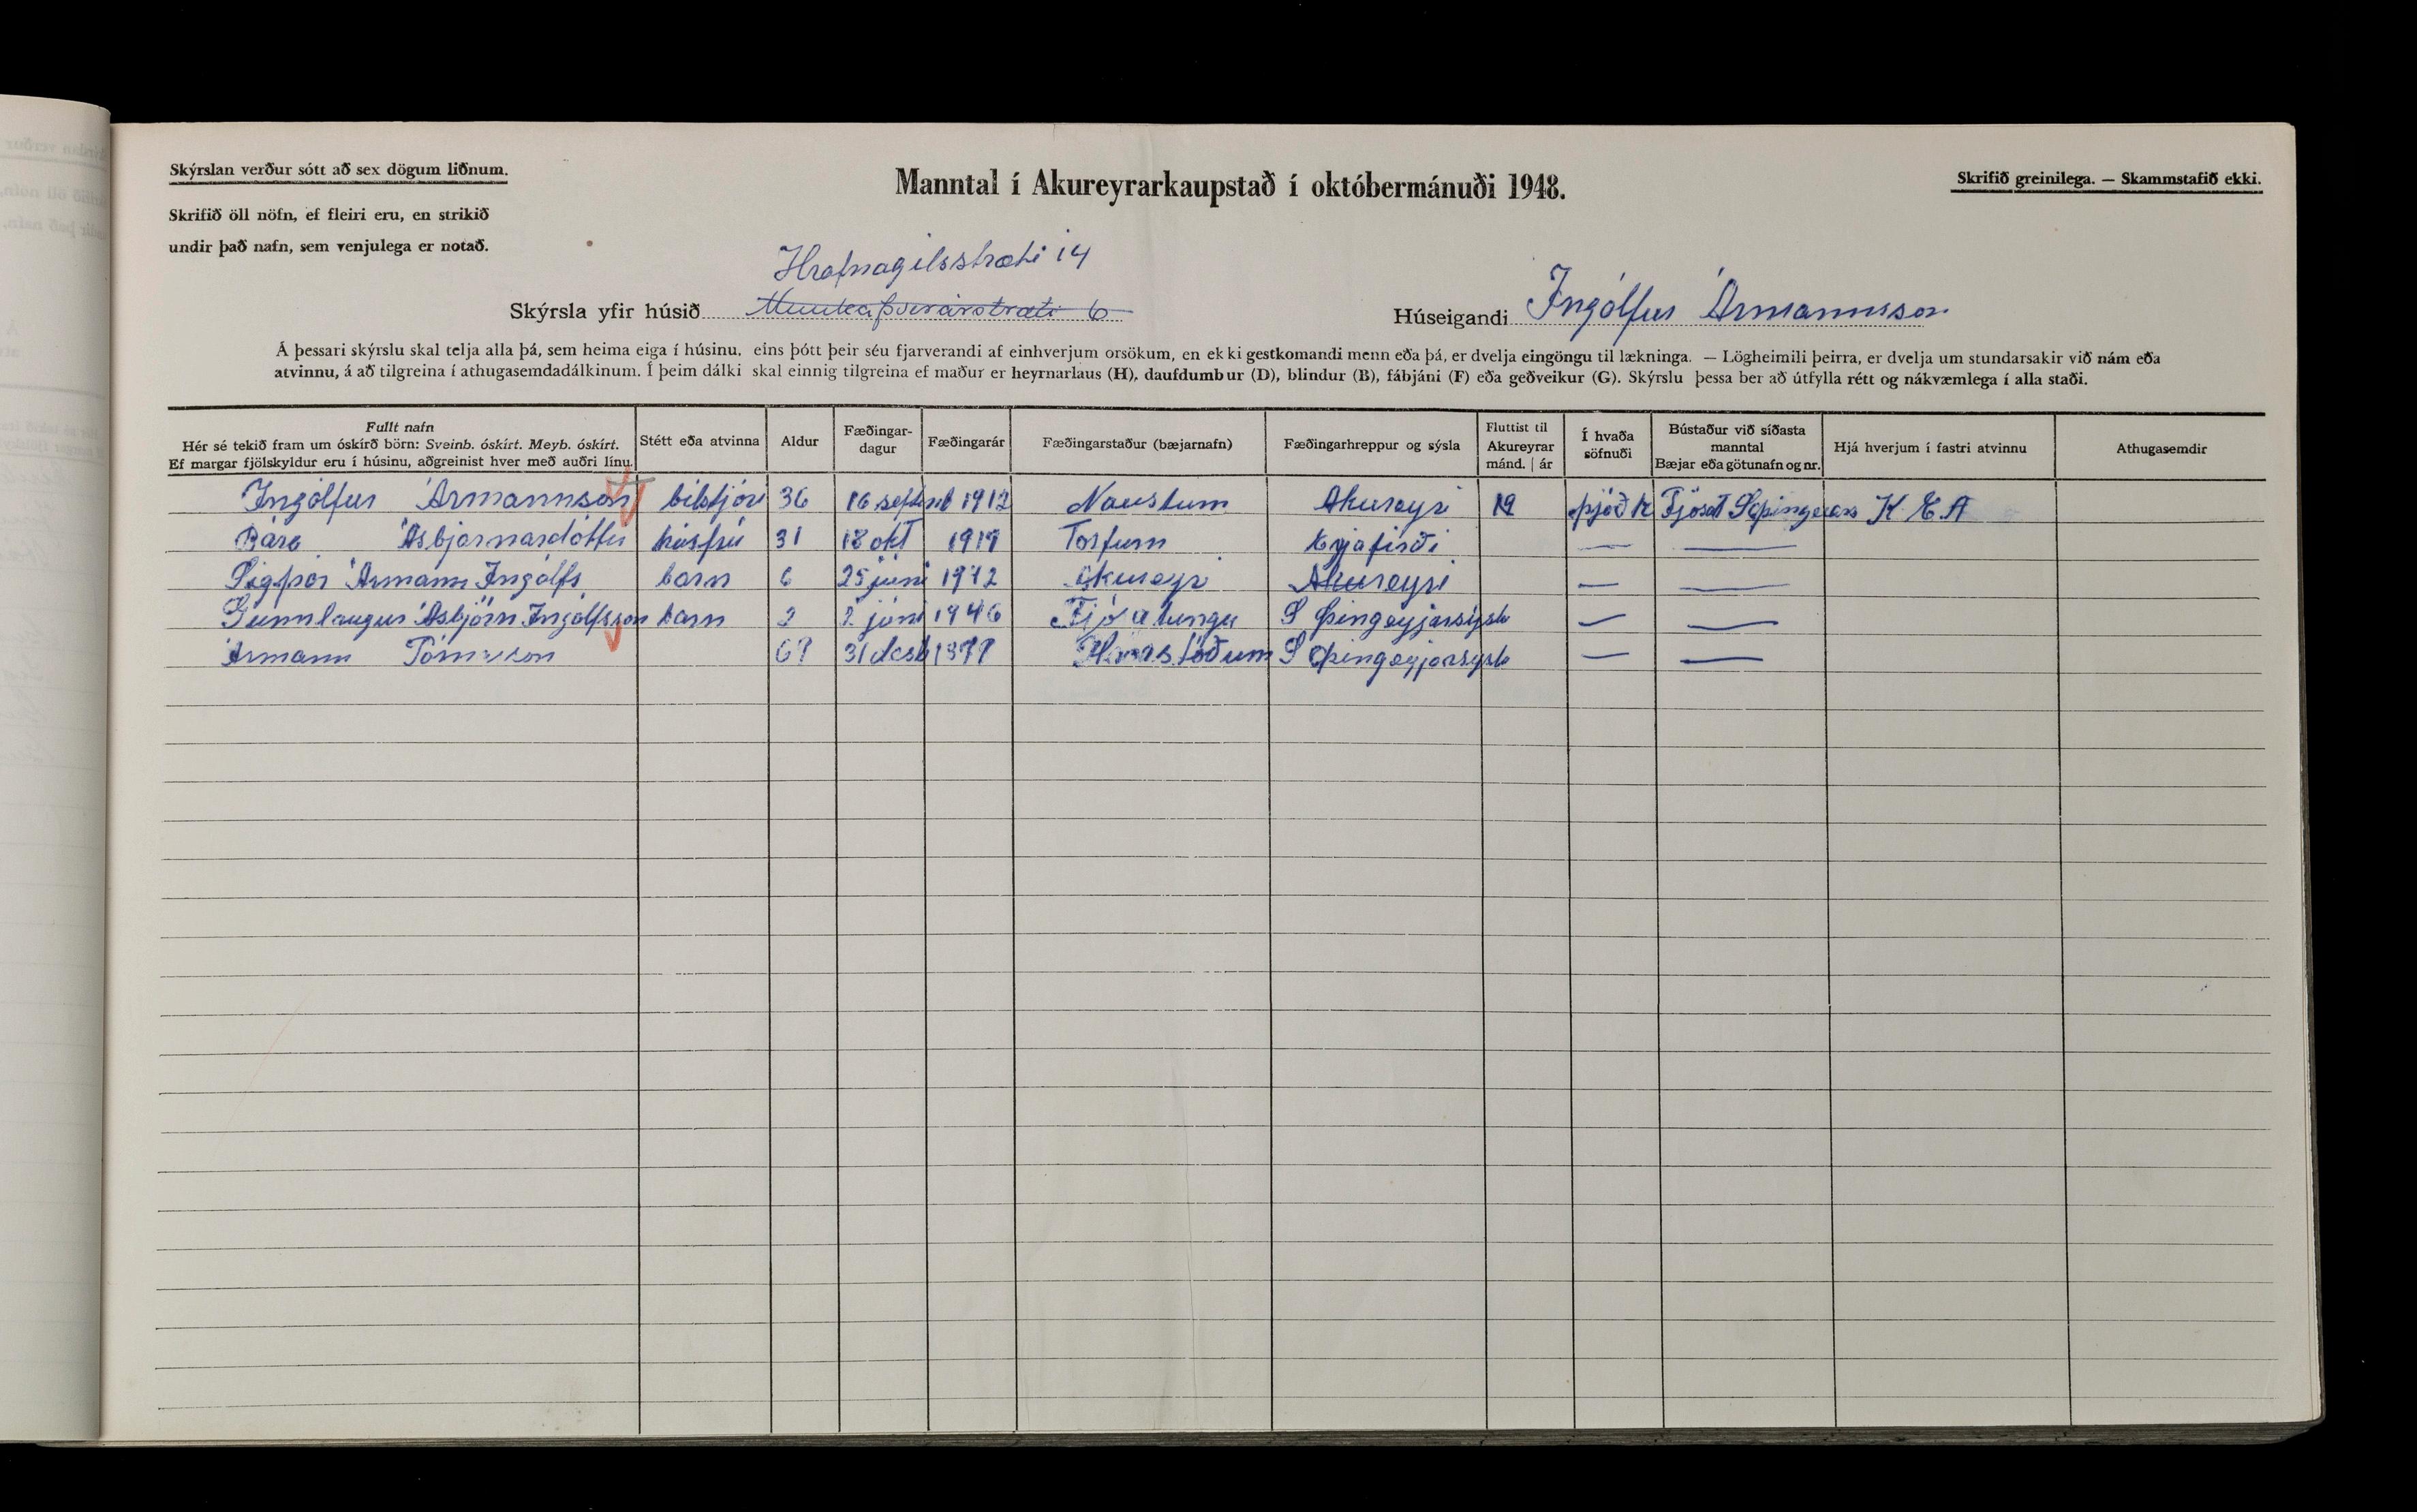 Skýrslan verður sótt að sex dögum liðnum.
Skrifið öll nöfn, ef fleiri eru, en strikið
undir það nafn, sem venjulega er notað.
Manntal í Akureyrarkaupstað í októbermánuði 1948.
Skrifið greinilega. — Skammstafið ekki.
Hrafnagilsstræti 14
Skýrsla yfir húsið Munkaþverárstræti 6
Húseigandi Ingólfur Ármannsson
Á þessari skýrslu skal telja alla þá, sem heima eiga í húsinu, eins þótt þeir séu fjarverandi af einhverjum orsökum, en ekki gestkomandi menn eða þá, er dvelja eingöngu til lækninga. — Lögheimili þeirra, er dvelja um stundarsakir við nám eða
atvinnu, á að tilgreina í athugasemdadálkinum. Í þeim dálki skal einnig tilgreina ef maður er heyrnarlaus (H), daufdumbur (D), blindur (B), fábjáni (F) eða geðveikur (G). Skýrslu þessa ber að útfylla rétt og nákvæmlega í alla staði.
Fullt nafn
Hér sé tekið fram um óskírð börn: Sveinb. óskírt. Meyb. óskírt.
Ef margar fjölskyldur eru í húsinu, aðgreinist hver með auðri línu.
Stétt eða atvinna
Aldur
Fæðingar-
dagur
Fæðingarár
Fæðingarstaður (bæjarnafn)
Fæðingarhreppur og sýsla
Fluttist til
Akureyrar
mánd. | ár
Í hvaða
söfnuði
Bústaður við síðasta
manntal
Bæjar eða götunafn og nr.
Hjá hverjum í fastri atvinnu
Athugasemdir
Ingólfur Ármannsson bílstjóri 36 16 septemb 1912 Naustum Akureyri 12 þjóðk K. E. A
Bára Ásbjarnardóttir húsfrú 31 18 okt 1917 Torfum Eyjafirði — —
Sigþór Ármann Ingólfs barn 6 25 júní 1942 Akureyri Akureyri — —
Gunnlaugur Ásbjörn Ingólfsson barn 2 2 júní 1946 S Þingeyjarsýslu — —
Ármann Tómasson 31 desb S Þingeyjarsýslu — —